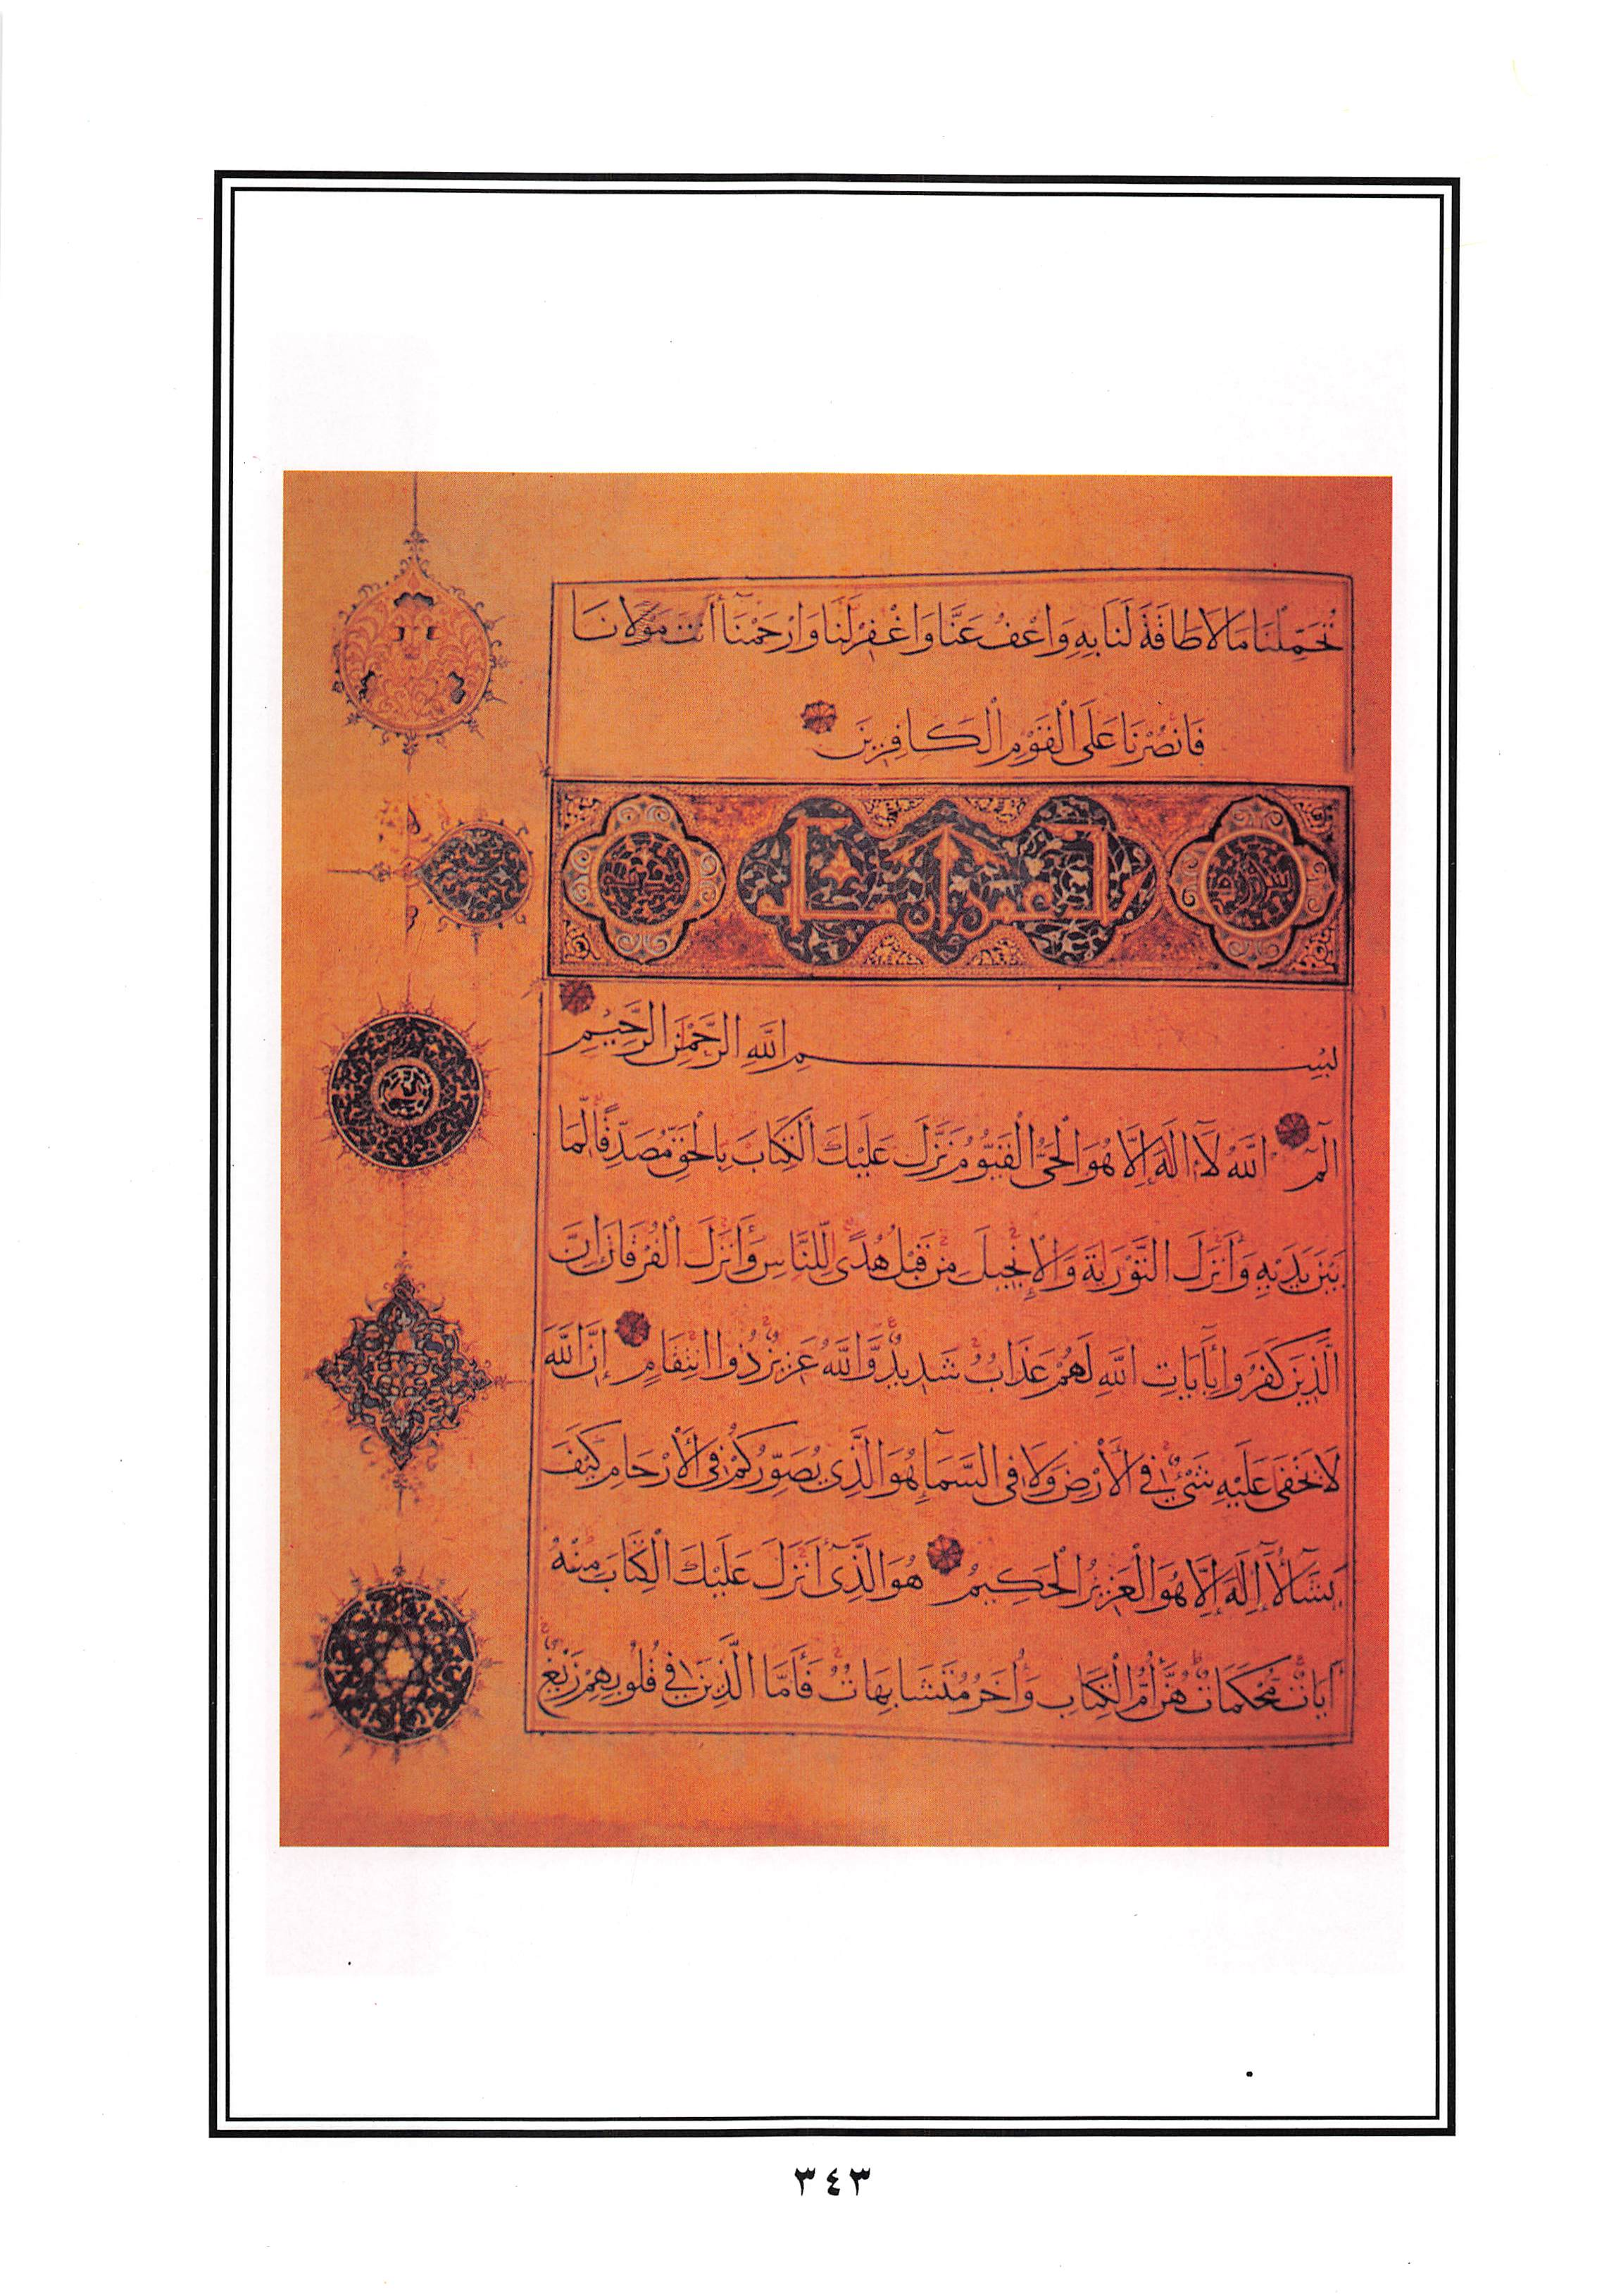 تُحَمِّلْنَا مَا لَا طَاقَةَ لَنَا بِهِ وَاعْفُ عَنَّا وَاغْفِرْ لَنَا وَارْحَمْنَا أَنْتَ مَوْلَانَا
فَانْصُرْنَا عَلَى الْقَوْمِ الْكَافِرِينَ
بِسْمِ اللَّهِ الرَّحْمَنِ الرَّحِيمِ
الٓمٓ اللَّهُ لَا إِلَهَ إِلَّا هُوَ الْحَيُّ الْقَيُّومُ نَزَّلَ عَلَيْكَ الْكِتَابَ بِالْحَقِّ مُصَدِّقًا لِّمَا
بَيْنَ يَدَيْهِ وَأَنْزَلَ التَّوْرَيةَ وَالْإِنْجِيلَ مِنْ قَبْلُ هُدًى لِّلنَّاسِ وَأَنْزَلَ الْفُرْقَانَ إِنَّ
الَّذِينَ كَفَرُوا بِأَيَاتِ اللَّهِ لَهُمْ عَذَابٌ شَدِيدٌ وَّاللَّهُ عَزِيزٌ ذُوا انْتِقَامٍ إِنَّ اللَّهَ
لَا يَخْفَى عَلَيْهِ شَيْءٌ فِي الْأَرْضِ وَلَا فِي السَّمَآءِ هُوَ الَّذِي يُصَوِّرُكُمْ فِي الْأَرْحَامِ كَيْفَ
يَشَآءُ لَآ إِلَهَ إِلَّا هُوَ الْعَزِيزُ الْحَكِيمُ هُوَ الَّذِيٓ أَنْزَلَ عَلَيْكَ الْكِتَابَ مِنْهُ
أَيَاتٌ مُّحْكَمَاتٌ هُنَّ أُمُّ الْكِتَابِ وَأُخَرُ مُتَشَابِهَاتٌ فَأَمَّا الَّذِينَ فِي قُلُوبِهِمْ زَيْغٌ
٣٤٣